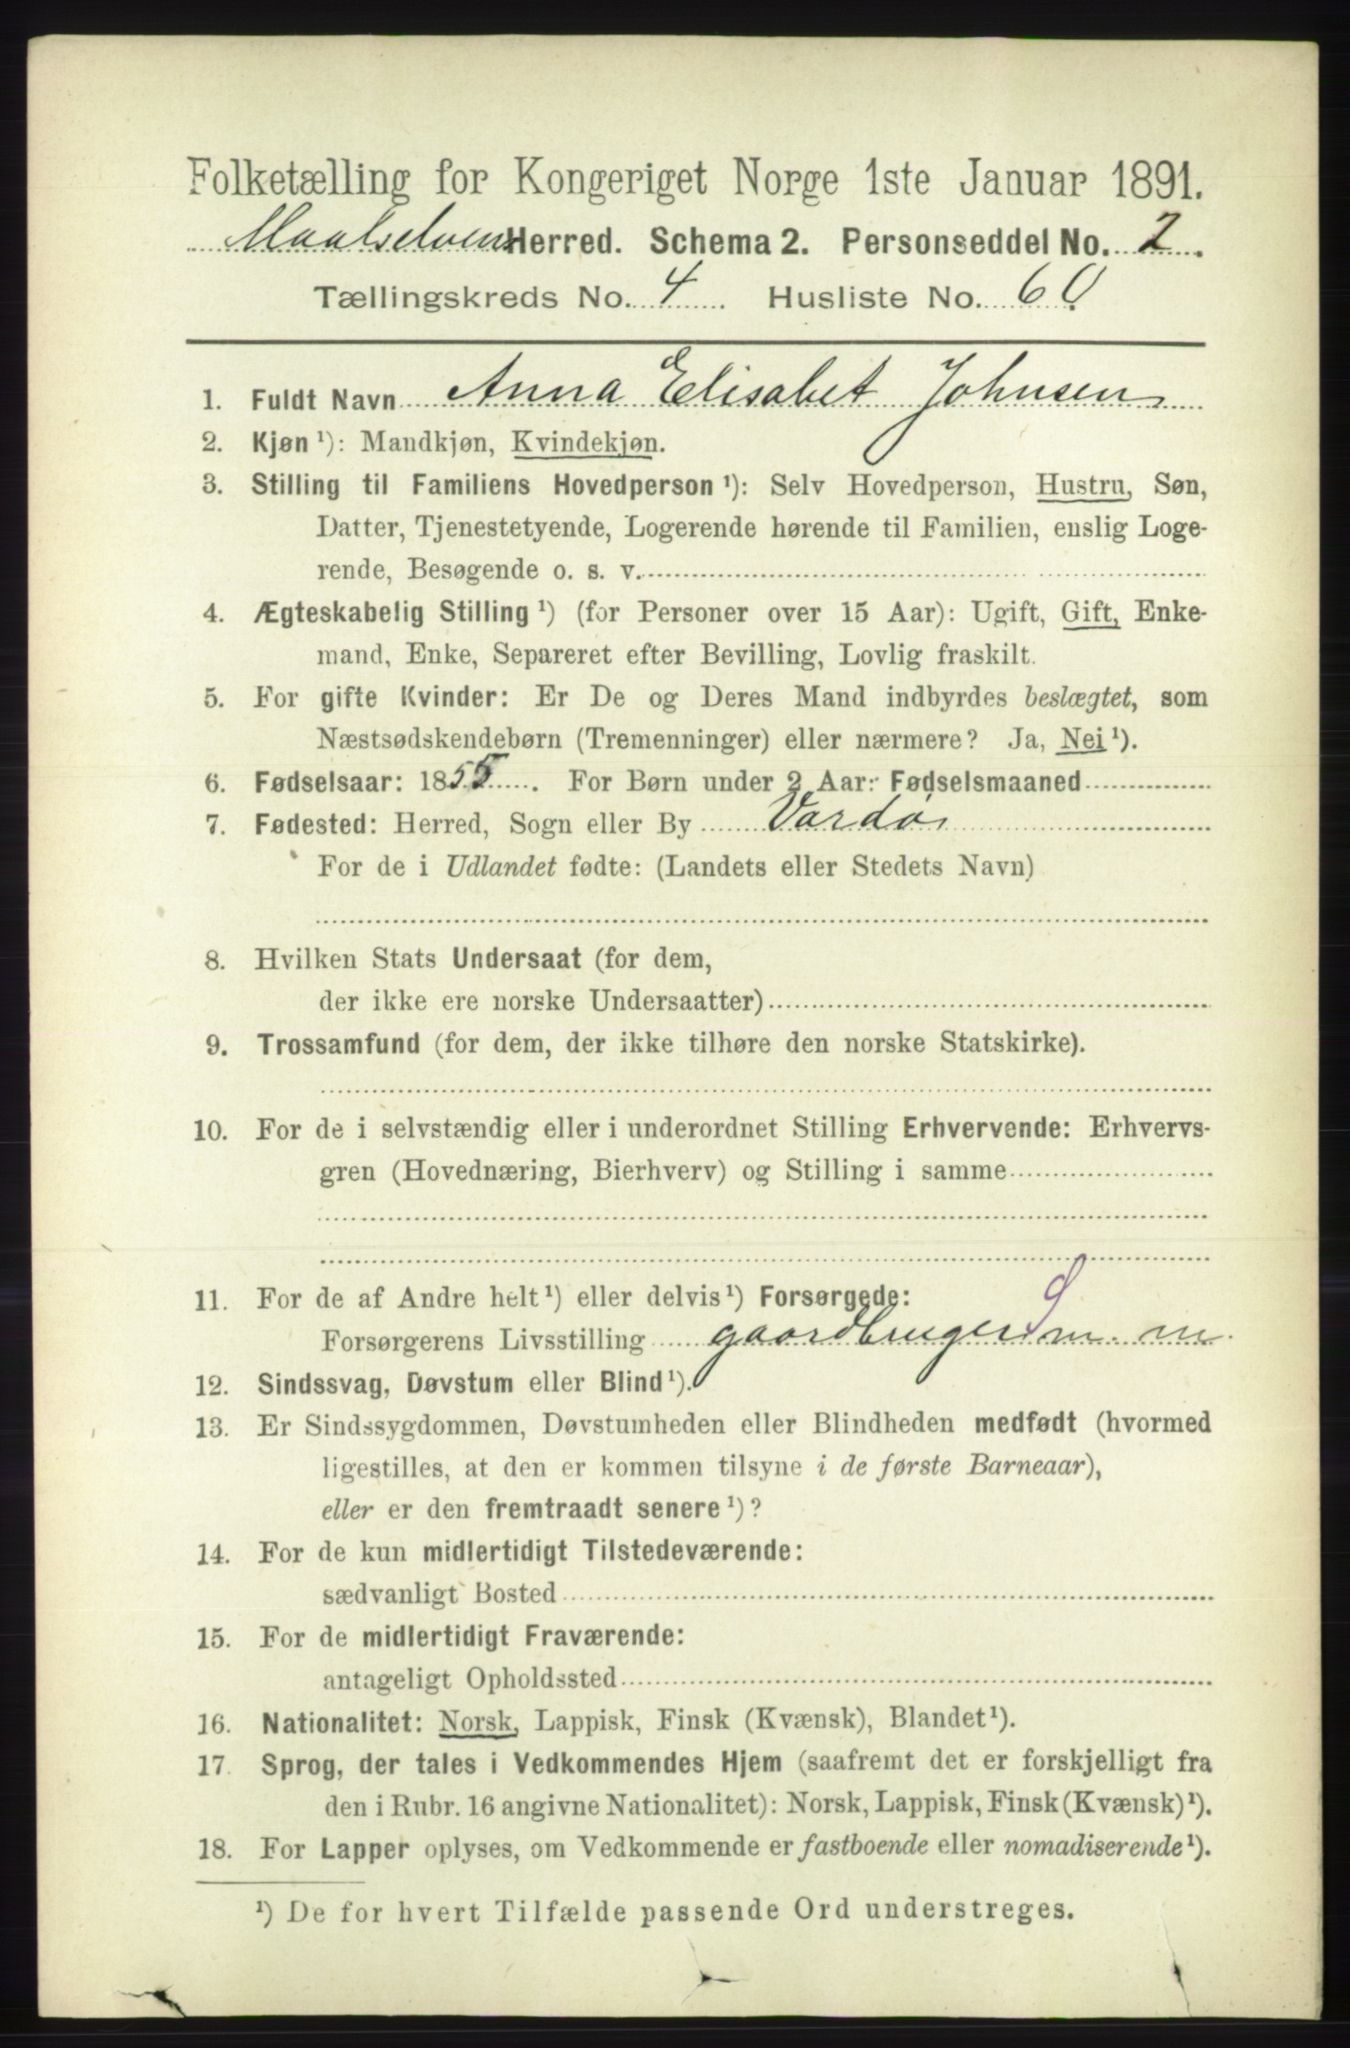 Folketælling for Kongeriget Norge 1ste Januar 1891.
Maalselvens Herred. Schema 2. Personseddel No. 2.
Tællingskreds No. 4 Husliste No. 60
1. Fuldt Navn Anna Elisabet Johnsen
2. Kjøn ¹): Mandkjøn, Kvindekjøn.
3. Stilling til Familiens Hovedperson ¹): Selv Hovedperson, Hustru, Søn,
Datter, Tjenestetyende, Logerende hørende til Familien, enslig Loge-
rende, Besøgende o. s. v.
4. Ægteskabelig Stilling ¹) (for Personer over 15 Aar): Ugift, Gift, Enke-
mand, Enke, Separeret efter Bevilling, Lovlig fraskilt.
5. For gifte Kvinder: Er De og Deres Mand indbyrdes beslægtet, som
Næstsødskendebørn (Tremenninger) eller nærmere? Ja, Nei ¹).
6. Fødselsaar: 1855. For Børn under 2 Aar: Fødselsmaaned
7. Fødested: Herred, Sogn eller By Vardø
For de i Udlandet fødte: (Landets eller Stedets Navn)
8. Hvilken Stats Undersaat (for dem,
der ikke ere norske Undersaatter)
9. Trossamfund (for dem, der ikke tilhøre den norske Statskirke).
10. For de i selvstændig eller i underordnet Stilling Erhvervende: Erhvervs-
gren (Hovednæring, Bierhverv) og Stilling i samme
11. For de af Andre helt ¹) eller delvis ¹) Forsørgede:
Forsørgerens Livsstilling gaardbruger m. m.
12. Sindssvag, Døvstum eller Blind ¹).
13. Er Sindssygdommen, Døvstumheden eller Blindheden medfødt (hvormed
ligestilles, at den er kommen tilsyne i de første Barneaar),
eller er den fremtraadt senere ¹)?
14. For de kun midlertidigt Tilstedeværende:
sædvanligt Bosted
15. For de midlertidigt Fraværende:
antageligt Opholdssted
16. Nationalitet: Norsk, Lappisk, Finsk (Kvænsk), Blandet ¹).
17. Sprog, der tales i Vedkommendes Hjem (saafremt det er forskjelligt fra
den i Rubr. 16 angivne Nationalitet): Norsk, Lappisk, Finsk (Kvænsk) ¹).
18. For Lapper oplyses, om Vedkommende er fastboende eller nomadiserende ¹).
¹) De for hvert Tilfælde passende Ord understreges.